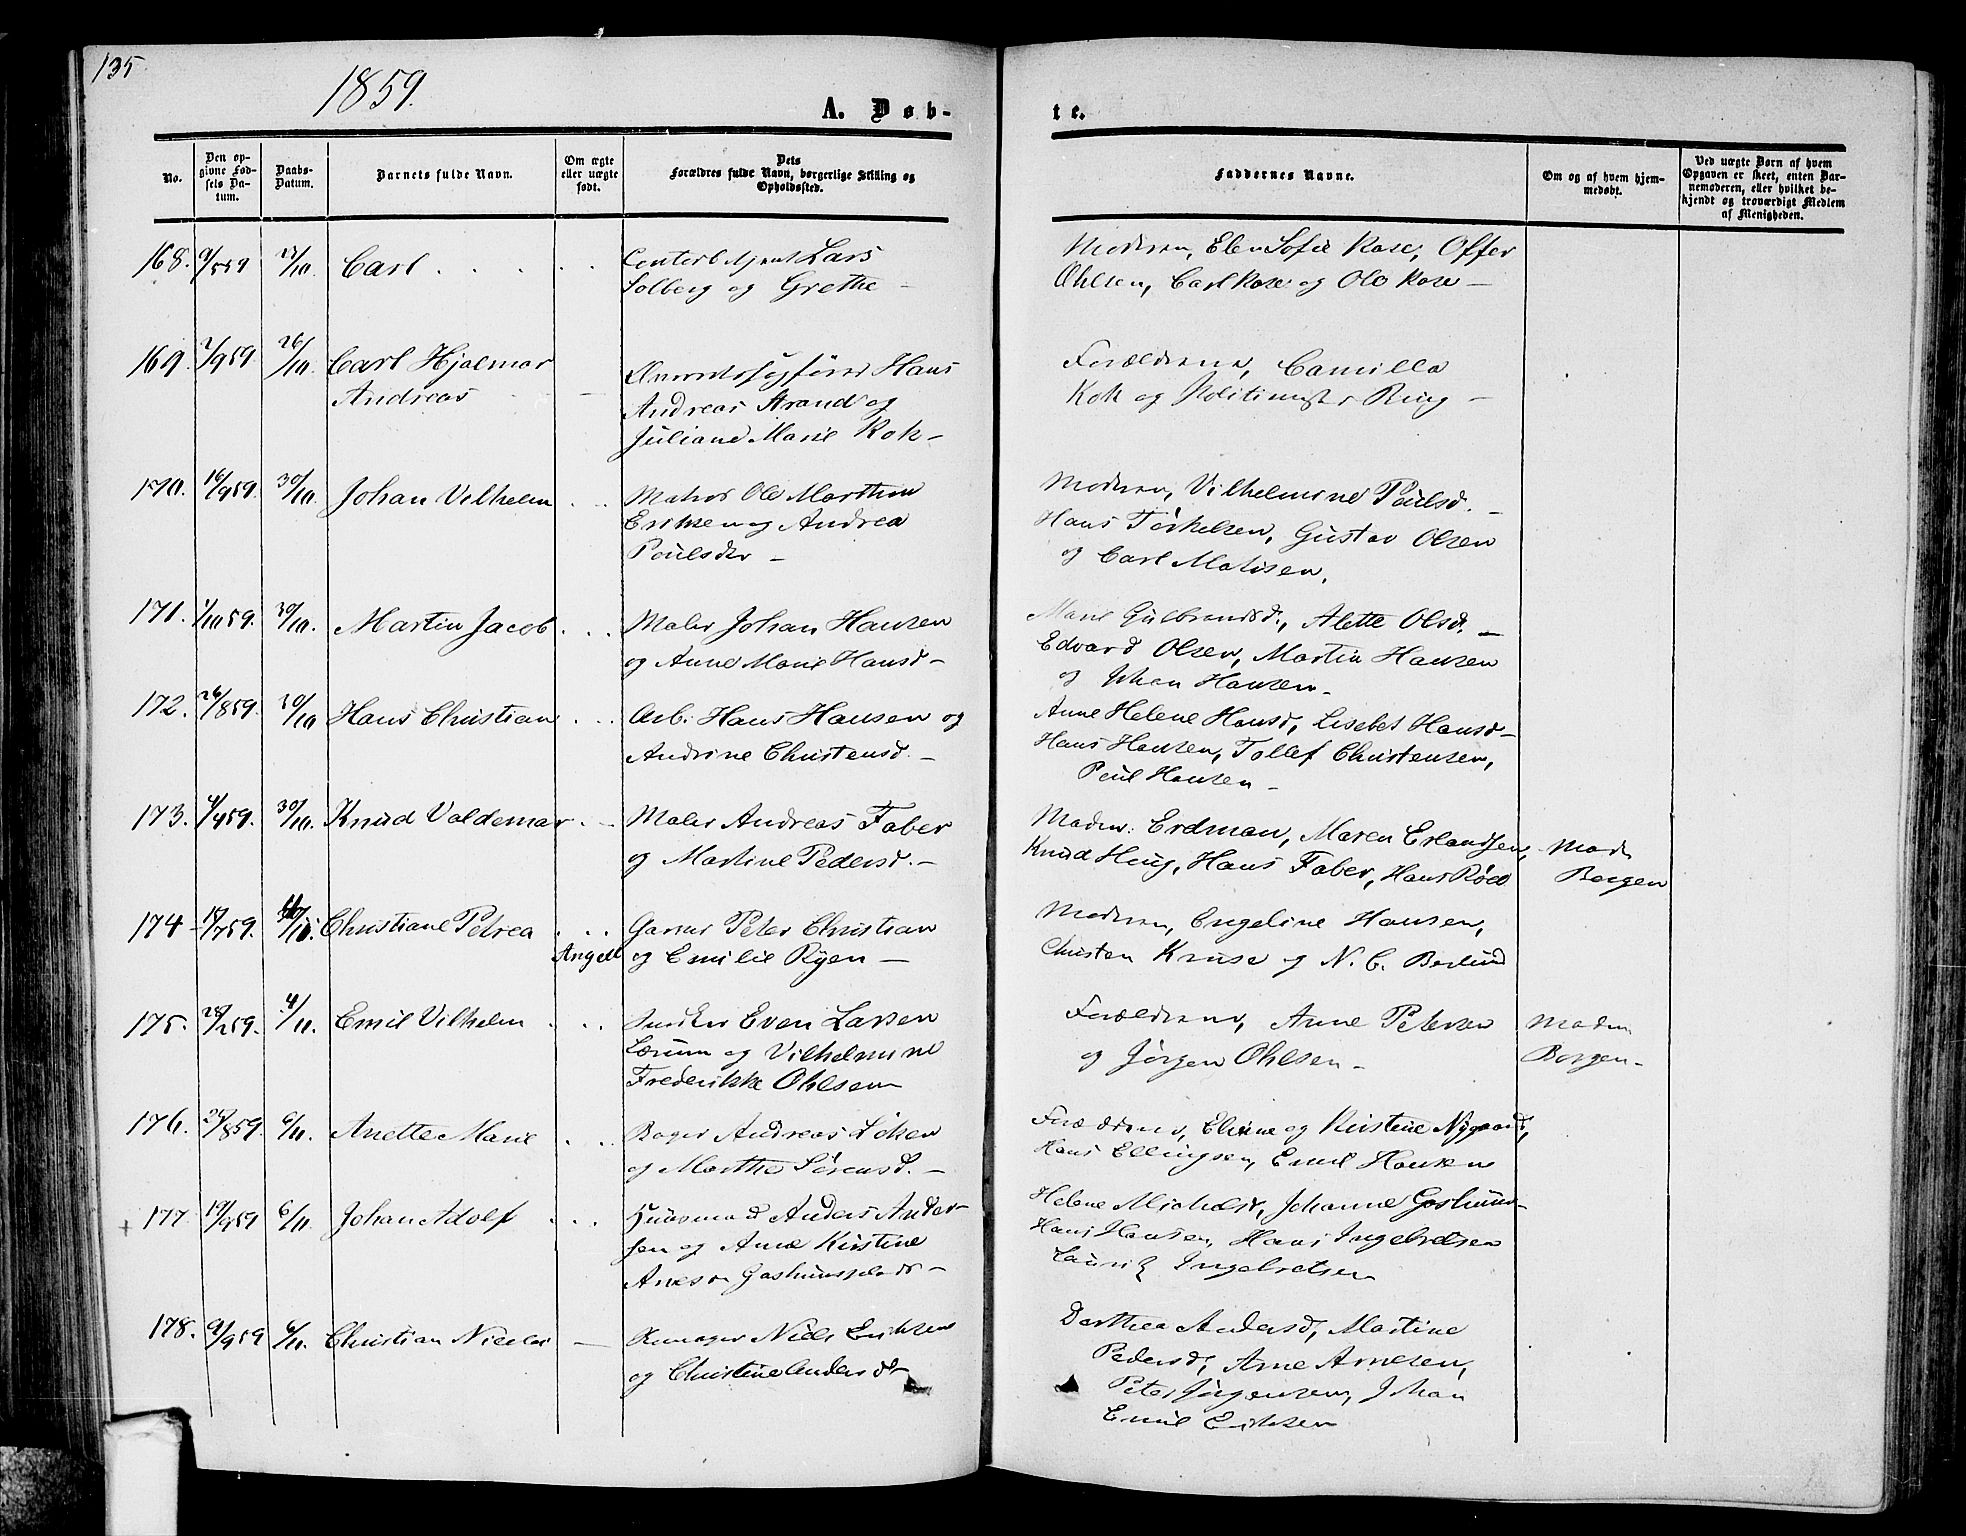 135
1859.
A. Døb-
te.
No.
Den op-
givne Fød-
sels Da-
tum.
Daabs-
Datum.
Barnets fulde Navn.
Om ægte
eller uægte
født.
Dets
Forældres fulde Navn, borgerlige Stilling og
Opholdssted.
Faddernes Navne.
Om og af hvem hjem-
medøbt.
Ved uægte Børn af hvem
Opgaven er skeet, enten Bar-
nemoderen, eller hvilket be-
kjendt og troværdigt Medlem
af Menigheden.
168. 9/5 59 Carl Lars
Solberg og Grethe -
Moderen, Elen Sofie Rose, Offer
Ohlsen, Carl Rose og Ole Rose -
169. 7/9 59 26/10. Carl Hjalmar
Andreas -
Hans
Andreas Strand og
Juliane Marie Kok -
Forældrene, Camilla
Kok og Politimester Ring -
170. 16/9 59. 30/10. Johan Vilhelm
Matros Ole Marthin
Eriksen og Andrea
Poulsdtr -
Moderen, Vilhelmine Poulsd. -
Hans Torkelsen, Gustav Olsen
og Carl Matisen.
171. 1/10 59. 30/10. Martin Jacob
Maler Johan Hansen
og Anne Marie Hansd -
Marie Gulbrandsd., Alette Olsd. -
Edvard Olsen, Martin Hansen
og Johan Hansen -
172. 26/8 59. 30/10 Hans Christian
Arb. Hans Hansen og
Andrine Christensd. -
Anne Helene Hansd, Lisebet Hansd -
Hans Hansen, Tollef Christensen,
Poul Hansen -
173. 4/4 59. 30/10. Knud Valdemar -
Maler Andreas Faber
og Martine Pedersd. -
Madm. Erdman, Maren Erlandsen,
Knud Haug, Hans Faber, Hans Röed
Mad.
Borgen
174 Christiane Petrea
Angell
Garver Peter Christian
og Emilie Ryen -
Moderen, Engeline Hansen,
Christen Kruse og N. C. Berlund
175. 28/2 59. 4/11. Emil Vilhelm
Snedker Even Larsen
Lærum og Vilhelmine
Frederikke Ohlsen
Forældrene, Anne Petersen
og Jörgen Ohlsen -
Madm
Borgen -
176. 6/11. Anette Marie
Bager Andreas Löken
og Marthe Sörensd. -
Forældrene, Eline og Kirstine Nygaard,
Hans Ellingsen, Emil Hansen
177 19/9 59 6/11. Johan Adolf
Huusmand Anders Ander-
sen og Anne Kirstine
Helene Michelsd, Johanne
Hans Hansen, Hans Ingelretsen
Lauritz Ingelretsen
178. 9/9 59 6/11. Christian Nicolai -
Niels Eriksen
og Christine Andersdtr
Dorthea Andersd, Martine
Pedersd, Arne Arnesen,
Peter Jörgensen, Johan
Emil Eriksen